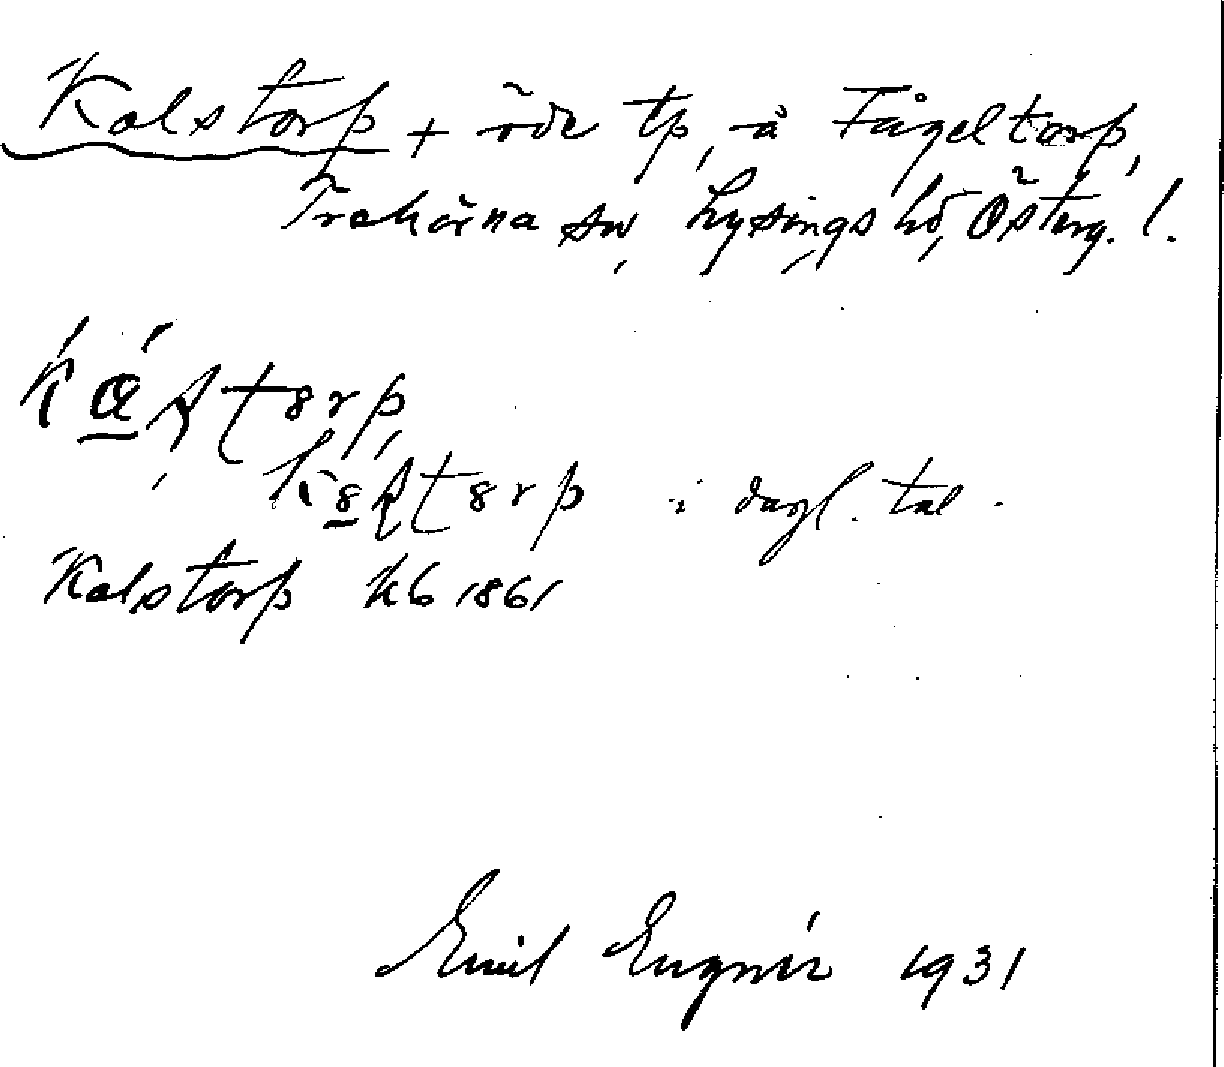 Kalstorp + öde tp, å Fågeltorp,
Trehörna sn, Lysings hd, Österg. l.
i dagl. tal.
Kalstorp kb 1861
Emil Engnér 1931